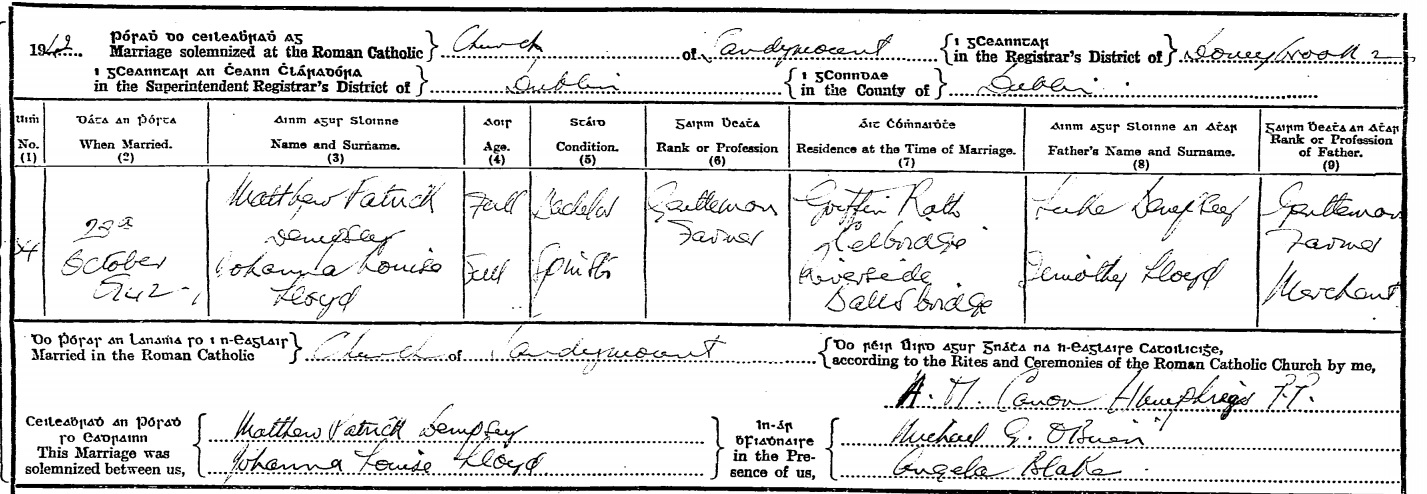 1942. Pórað do ceileabrað ag Marriage solemnized at the Roman Catholic } Church of Sandymount { i gCeanntar in the Registrar's District of } Donnybrook 2
i gCeanntar an Ċeann Ċláraḋóra in the Superintendent Registrar's District of } Dublin { i gConndae in the County of } Dublin
Uiṁ No. (1) Dáta an Ṗórta When Married. (2) Ainm agus Sloinne Name and Surname. (3) Aois Age. (4) Stáid Condition. (5) Gairm Beaṫa Rank or Profession (6) Áit Ċóṁnaiḋṫe Residence at the Time of Marriage. (7) Ainm agus Sloinne an Aṫar Father's Name and Surname. (8) Gairm Beaṫa an Aṫar Rank or Profession of Father. (9)
Matthew Patrick Full Bachelor Gentleman Griffin Rath Luke Dempsey Gentleman
28th Dempsey Farmer Celbridge Farmer
October Johanna Louise Full Spinster Riverside Timothy Lloyd Merchant
1942 Lloyd Ballsbridge
Do Pórað an lánaṁa so i n-Eaglais Married in the Roman Catholic } Church of Sandymount { Do réir Uird agus Gnáṫa na h-Eaglaise Catoilicige, according to the Rites and Ceremonies of the Roman Catholic Church by me,
Canon Humphreys P.P.
Ceileabrað an Pórað so eadrainn This Marriage was solemnized between us, { Matthew Patrick Dempsey } In-ár bFiaðnaire in the Presence of us, { Michael G. O'Brien
Johanna Louise Lloyd Angela Blake